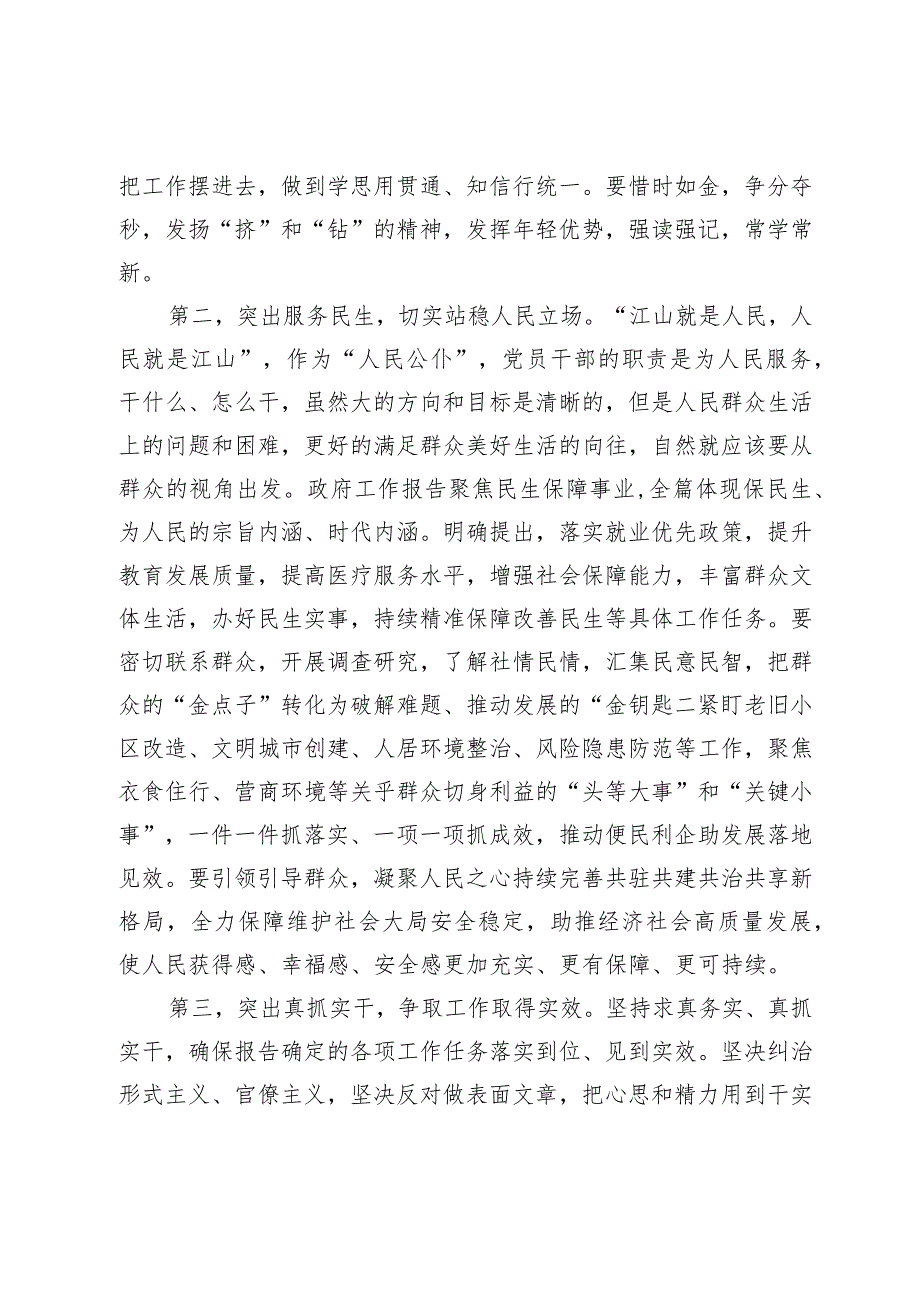 把工作摆进去，做到学思用贯通、知信行统一。要惜时如金，争分夺
秒，发扬“挤”和“钻”的精神，发挥年轻优势，强读强记，常学常
新。
第二，突出服务民生，切实站稳人民立场。“江山就是人民，人
民就是江山”，作为“人民公仆”，党员干部的职责是为人民服务，
干什么、怎么干，虽然大的方向和目标是清晰的，但是人民群众生活
上的问题和困难，更好的满足群众美好生活的向往，自然就应该要从
群众的视角出发。政府工作报告聚焦民生保障事业,全篇体现保民生、
为人民的宗旨内涵、时代内涵。明确提出，落实就业优先政策，提升
教育发展质量，提高医疗服务水平，增强社会保障能力，丰富群众文
体生活，办好民生实事，持续精准保障改善民生等具体工作任务。要
密切联系群众，开展调查研究，了解社情民情，汇集民意民智，把群
众的“金点子”转化为破解难题、推动发展的“金钥匙二紧盯老旧小
区改造、文明城市创建、人居环境整治、风险隐患防范等工作，聚焦
衣食住行、营商环境等关乎群众切身利益的“头等大事”和“关键小
事”，一件一件抓落实、一项一项抓成效，推动便民利企助发展落地
见效。要引领引导群众，凝聚人民之心持续完善共驻共建共治共享新
格局，全力保障维护社会大局安全稳定，助推经济社会高质量发展，
使人民获得感、幸福感、安全感更加充实、更有保障、更可持续。
第三，突出真抓实干，争取工作取得实效。坚持求真务实、真抓
实干，确保报告确定的各项工作任务落实到位、见到实效。坚决纠治
形式主义、官僚主义，坚决反对做表面文章，把心思和精力用到干实